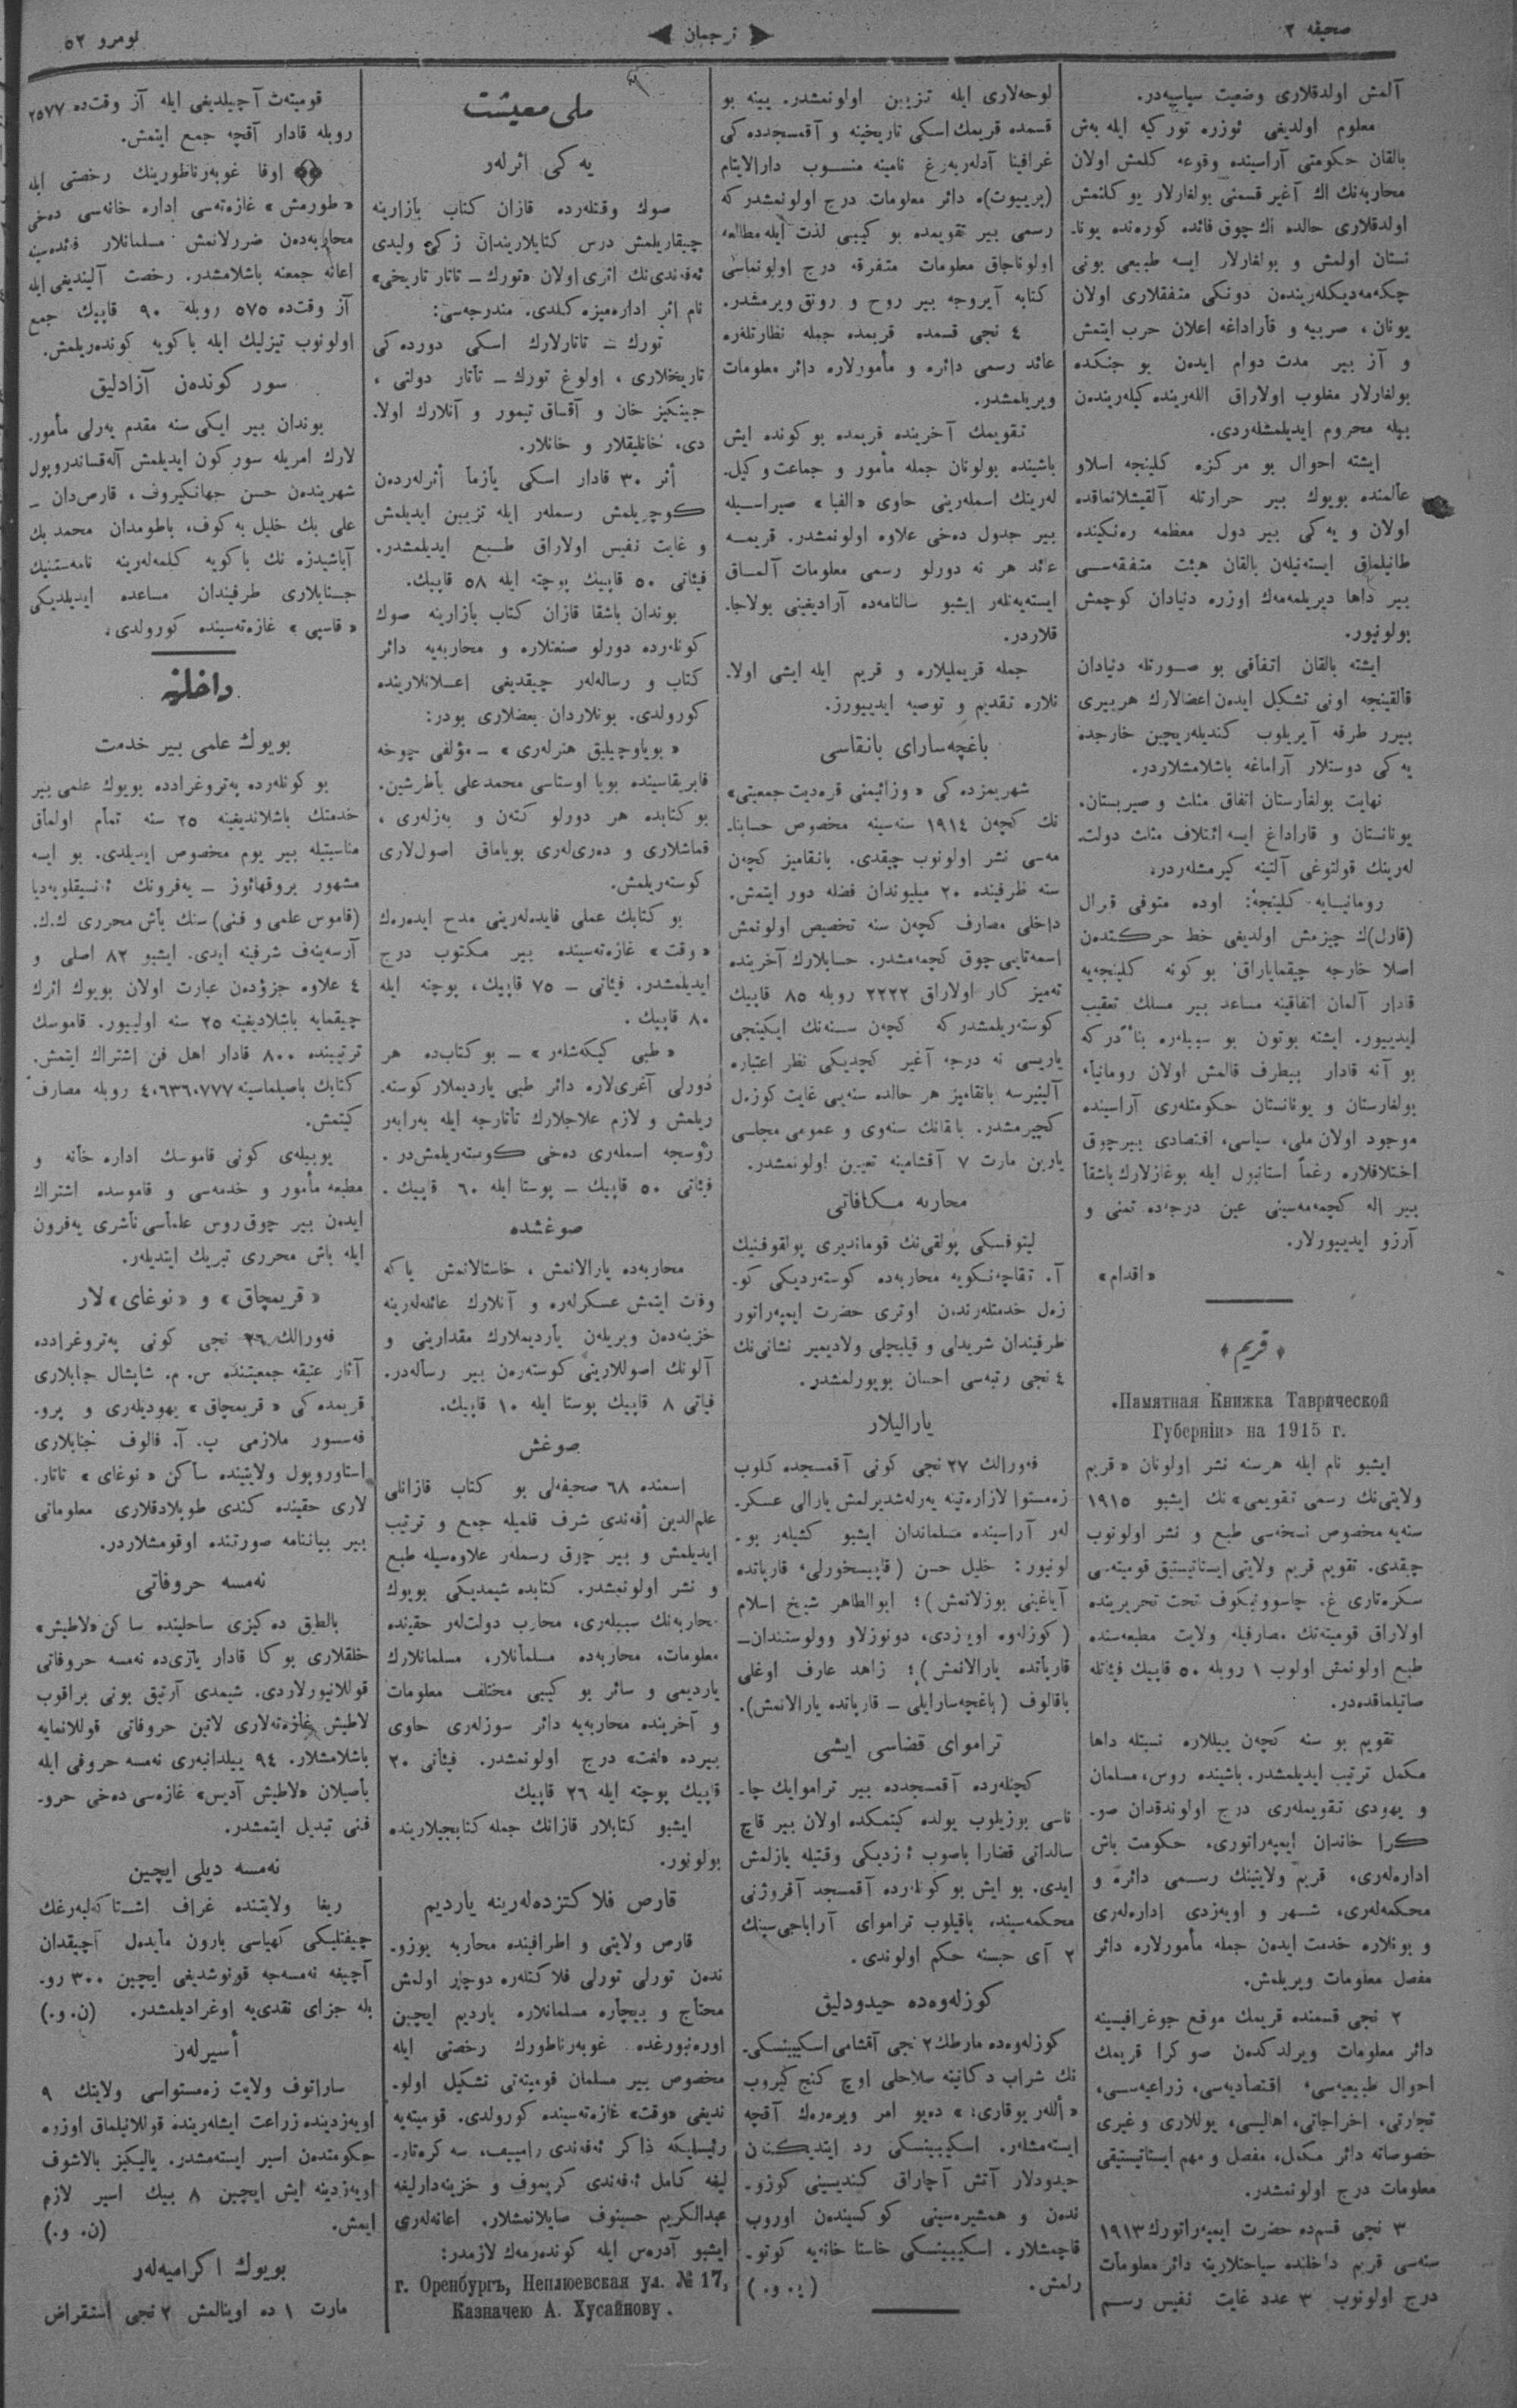 صحیفه ٢
ترجمان
نومرو ٥٢
آلمش اولدقلاری وضعیت سیاسیه‌در.
معلوم اولدیغی ئوزره تورکیه ایله بەش
بالقان حکومتی آراسینده وقوعه کلمش اولان
محاربه‌نك اك آغیر قسمنی بولغارلار یوکلنمش
اولدقلاری حالده اك چوق فائده کوره‌نده یونا-
نستان اولمش و بولغارلار ایسه طبیعی بونی
چکه‌مەدیکلەریندن دونکی متفقلاری اولان
یونان، صربیه و قاراداغه اعلان حرب ایتمش
و آز بیر مدت دوام ایدن بو جنکده
بولغارلار مغلوب اولاراق اللەرینده کیلەریندن
بیله محروم ایدیلمشلەردی.
ایشته احوال بو مرکزه کلینجه اسلاو
عالمنده بویوك بیر حرارتله آلقیشلانماقده
اولان و یەکی بیر دول معظمه رەنکینده
طانیلماق ایستەنیلەن بالقان هیئت متفقه‌سی
بیر داها دیریلمەمەك اوزره دنیادان کوچمش
بولونیور.
ایشته بالقان اتفاقی بو صورتله دنیادان
قالقینجه اونی تشکیل ایدەن اعضالارك هربیری
بیرر طرفه آیریلوب کندیلەریچین خارجده
یەکی دوستلار آراماغه باشلامشلاردر.
نهایت بولغارستان اتفاق مثلث و صیربستان،
یونانستان و قاراداغ ایسه ائتلاف مثلث دولت-
لەرینك قولتوغی آلتینه کیرمشلەردر.
رومانیایه کلینجه: اوده متوفی قرال
(قارل)ك چیزمش اولدیغی خط حرکتدەن
اصلا خارجه چیقمایاراق بوکونه کلینجەیه
قدار آلمان اتفاقینه مساعد بیر مسلك تعقیب
ایدییور. ایشته بوتون بو سببلەره بناءدرکه
بو آنه قادار بیطرف قالمش اولان رومانیا،
بولغارستان و یونانستان حکومتلەری آراسینده
موجود اولان ملی، سیاسی، اقتصادی بیرچوق
اختلافلاره رغماً استانبول ایله بوغازلارك باشقا
بیر اله کچمەمەسینی عین درجه‌ده تمنی و
آرزو ایدییورلار.
«اقدام»
﴿ قریم ﴾
«Памятная Книжка Таврической
Губерніи» на 1915 г.
ایشبو نام ایله هرسنه نشر اولونان «قریم
ولایتی‌نك رسمی تقویمی» نك ایشبو ١٩١٥
سنه‌یه مخصوص نسخه‌سی طبع و نشر اولونوب
چیقدی. تقویم قریم ولایتی ایستاتیستیق قومیته‌سی
سکره‌تاری غ. چاسوونیکوف تحت تحریرینده
اولاراق قومیتەنك مصارفیله ولایت مطبعه‌سنده
طبع اولونمش اولوب ١ روبله ٥٠ قاپیك فیئاتله
صاتیلماقده‌در.
تقویم بو سنه کچەن ییللاره نسبتله داها
مکمل ترتیب ایدیلمشدر. باشینده روس، مسلمان
و یهودی تقویملەری درج اولوندقدان صو-
کرا خاندان ایمپەراتوری، حکومت باش
ادارەلەری، قریم ولایتینك رسمی دائره و
محکمەلەری، شهر و اویەزدی ادارەلەری
و بونلاره خدمت ایدەن جمله مأمورلاره دائر
مفصل معلومات ویریلمش.
٢ نجی قسمنده قریمك موقع جوغرافیسینه
دائر معلومات ویرلدکدەن صوکرا قریمك
احوال طبیعیه‌سی، اقتصادیه‌سی، زراعیه‌سی،
تجارتی، اخراجاتی، اهالیسی، یوللاری وغیری
خصوصاته دائر مکمل، مفصل و مهم ایستاتیستیقی
معلومات درج اولونمشدر.
٣ نجی قسمده حضرت ایمپەراتورك ١٩١٣
سنه‌سی قریم داخلنده سیاحتلارینه دائر معلومات
درج اولونوب ٣ عدد غایت نفیس رسم
لوحەلاری ایله تزیین اولونمشدر. یینه بو
قسمده قریمك اسکی تاریخینه و آقمسجدده کی
غرافینا آدلەربەرغ نامینه منسوب دارالایتام
(پرییوت)ه دائر معلومات درج اولونمشدرکه
رسمی بیر تقویمده بو کیبی لذت ایله مطالعه
اولوناجاق معلومات متفرقه درج اولونماسی
کتابه آیروجه بیر روح و رونق ویرمشدر.
٤ نجی قسمده قریمده جمله نظارتلەره
عائد رسمی دائره و مأمورلاره دائر معلومات
ویریلمشدر.
تقویمك آخرینده قریمده بوکونده ایش
باشینده بولونان جمله مأمور و جماعت وکیل-
لەرینك اسملەرینی حاوی «الفبا» صیراسیله
بیر جدول دەخی علاوه اولونمشدر. قریمه
عائد هر نه دورلو رسمی معلومات آلماق
ایستەیەنلەر ایشبو سالنامه‌ده آرادیغینی بولاجا-
قلاردر.
جمله قریملیلاره و قریم ایله ایشی اولا-
نلاره تقدیم و توصیه ایدییورز.
باغچه‌سارای بانقاسی
شهریمزده کی «وزائیمنی قره‌دیت جمعیتی»
نك کچەن ١٩١٤ سنه‌سینه مخصوص حسابنا-
مه‌سی نشر اولونوب چیقدی. بانقامیز کچەن
سنه ظرفینده ٢٠ میلیوندان فضله دور ایتمش.
داخلی مصارف کچەن سنه تخصیص اولونمش
اسمەتایی چوق کچمەمشدر. حسابلارك آخرینده
تەمیز کار اولاراق ٢٢٢٢ روبله ٨٥ قاپیك
کوستەریلمشدرکه کچەن سنه‌نك ایکینجی
یاریسی نه درجه آغیر کچدیکی نظر اعتباره
آلینیرسه بانقامیز هر حالده سنه‌یی غایت کوزەل
کچیرمشدر. بانقانك سنەوی و عمومی مجلسی
یارین مارت ٧ آقشامینه تعیین اولونمشدر.
محاربه مکافاتی
لیتوفسکی پولقی‌نك قوماندیری پولقوفنیك
آ. تقاچه‌نکویه محاربه‌ده کوستەردیکی کو-
زەل خدمتلەرندن اوتری حضرت ایمپەراتور
طرفیندان شریدلی و قیلیچلی ولادیمیر نشانی‌نك
٤ نجی رتبه‌سی احسان بویورلمشدر.
یارالیلار
فەورالك ٢٧ نجی کونی آقمسجده کلوب
زەمستوا لازارەتینه یەرلەشدیرلمش یارالی عسکر-
لەر آراسینده مسلماندان ایشبو کشیلەر بو-
لونیور: خلیل حسن (قاپیسخورلی، قارپاتده
آیاغینی بوزلاتمش)؛ ابوالطاهر شیخ اسلام
(کوزلەوه اویزدی، دونوزلاو وولوستندان—
قارپاتده یارالانمش)؛ زاهد عارف اوغلی
باقالوف (باغچەسارایلی — قارپاتده یارالانمش).
ترامواى قضاسی ایشی
کچنلەرده آقمسجدده بیر تراموایك چا-
تاسی بوزیلوب یولده کیتمکده اولان بیر قاچ
سالداتی قضارا باصوب ئزدیکی وقتیله یازلمش
ایدی. بو ایش بو کونلرده آقمسجد آقروژنی
محکمه‌سینده باقیلوب ترامواى آراباجی‌سینك
٢ آی حبسنه حکم اولوندی.
کوزلەوەده حیدودلیق
کوزلەوەده مارطك ٢ نجی آقشامی اسکیبینسکی-
نك شراب دکانینه سلاحلی اوچ کنج کیروب
«أللەر یوقاری!» دەیو امر ویرەرەك آقچه
ایستەمشلەر. اسکیبینسکی رد ایتدیکندن
حیدودلار آتش آچاراق کندیسینی کوزو-
ندەن و همشیره‌سینی کوکسیندەن اوروب
قاچمشلار. اسکیبینسکی خاستا خانه‌یه کوتو-
رلمش.
(ی. و.)
ملی معیشت
یەکی اثرلەر
صوك وقتلەرده قازان کتاب بازارینه
چیقاریلمش درس کتابلاریندان زکی ولیدی
ئەفەندی‌نك اثری اولان «تورك — تاتار تاریخی»
نام اثر ادارەمیزه کلدی. مندرجەسی:
تورك — تاتارلارك اسکی دورده کی
تاریخلاری، اولوغ تورك — تاتار دولتی،
چینکیز خان و آقساق تیمور و آنلارك اولا-
دی، خانلیقلار و خانلار.
أثر ٣٠ قادار اسکی یازما أثرلەردەن
کوچریلمش رسملەر ایله تزیین ایدیلمش
و غایت نفیس اولاراق طبع ایدیلمشدر.
فیئاتی ٥٠ قاپیك پوچته ایله ٥٨ قاپیك.
بوندان باشقا قازان کتاب بازارینه صوك
کونلەرده دورلو صنعتلاره و محاربه‌یه دائر
کتاب و رسالەلەر چیقدیغی إعلانلاریندە
کورولدی. بونلاردان بعضلاری بودر:
«بویاوچیلیق هنرلەری» — مؤلفی چوخه
فابریقاسینده بویا اوستاسی محمدعلی یاطرشین.
بو کتابده هر دورلو کتەن و بەزلەری،
قماشلاری و دەری‌لەری بویاماق اصوللاری
کوستەریلمش.
بو کتابك عملی فایدەلەرینی مدح ایدەرەك
«وقت» غازه‌ته‌سینده بیر مکتوب درج
ایدیلمشدر. فیئاتی — ٧٥ قاپیك، پوچته ایله
٨٠ قاپیك.
«طبی کیکەشلەر» — بو کتاب‌ده هر
دورلی آغری‌لاره دائر طبی یاردیملار کوسته-
ریلمش و لازم علاجلارك تاتارجه ایله بەرابەر
رؤسجه اسملەری دەخی کوستەریلمش‌در.
فیئاتی ٥٠ قاپیك — پوستا ایله ٦٠ قاپیك.
صوغشده
محاربه‌ده یارالانمش، خاستالانمش یاکه
وفات ایتمش عسکرلەره و آنلارك عائلەلەرینه
خزینه‌دەن ویریلەن یاردیملارك مقدارینی و
آلونك اصوللارینی کوستەرەن بیر رساله‌در.
فیاتی ٨ قاپیك پوستا ایله ١٠ قاپیك.
صوغش
اسمنده ٦٨ صحیفه‌لی بو کتاب قازانلی
علم‌الدین أفەندی شرف قلمیله جمع و ترتیب
ایدیلمش و بیر چوق رسملەر علاوه‌سیله طبع
و نشر اولونمشدر. کتابده شیمدیکی بویوك
محاربه‌نك سببلەری، محارب دولت‌لەر حقینده
معلومات، محاربه‌ده مسلمانلار، مسلمانلارك
یاردیمی و سائر بو کیبی مختلف معلومات
و آخرینده محاربه‌یه دائر سوزلەری حاوی
بیرده «لغت» درج اولونمشدر. فیئاتی ٢٠
قاپیك پوچته ایله ٢٦ قاپیك
ایشبو کتابلار قازانك جمله کتابجیلارینده
بولونیور.
قارص فلاکتزده‌لەرینه یاردیم
قارص ولایتی و اطرافینده محاربه یوزو-
ندەن تورلی تورلی فلاکتلەره دوچار اولمش
محتاج و بیچاره مسلمانلاره یاردیم ایچین
اورەنبورغده غوبەرناطورك رخصتی ایله
مخصوص بیر مسلمان قومیته‌تی تشکیل اولو-
ندیغی «وقت» غازه‌ته‌سینده کورولدی. قومیته‌یه
رئیسلیکه ذاکر ئەفەندی رامییف، سەکرەتار-
لیغه کامل ئەفەندی کریموف و خزینه‌دارلیغه
عبدالکریم حسینوف صایلانمشلار. اعانه‌لەری
ایشبو آدرەس ایله کوندەرمەك لازمدر:
г. Оренбургъ, Неплюевская ул. № 17,
Казначею А. Хусаинову.
قومیتەت آچیلدیغی ایله آز وقت‌ده ٢٥٧٧
روبله قادار آقچه جمع ایتمش.
اوفا غوبەرناطورینك رخصتی ایله
«طورمش» غازه‌ته‌سی اداره خانه‌سی دەخی
محاربه‌دەن ضررلانمش مسلمانلار فائده‌سینه
اعانه جمعنه باشلامشدر. رخصت آلیندیغی ایله
آز وقت‌ده ٥٧٥ روبله ٩٠ قاپیك جمع
اولونوب تیزلیك ایله باکویه کوندەریلمش.
سورکوندەن آزادلیق
بوندان بیر ایکی سنه مقدم یەرلی مأمور-
لارك امریله سورکون ایدیلمش آلەقساندروپول
شهریندەن حسن جهانکیروف، قارص‌دان —
علی بك خلیل بەکوف، باطومدان محمد بك
آباشیدزه نك باکویه کلمەلەرینه نامەستنیك
جنابلاری طرفیندان مساعده ایدیلدیکی
«قاسپی» غازه‌ته‌سینده کورولدی.
داخلیه
بویوك علمی بیر خدمت
بو کونلەرده پەتروغرادده بویوك علمی بیر
خدمتك باشلاندیغینه ٢٥ سنه تمام اولماق
مناسبتیله بیر یوم مخصوص ایدیلدی. بو ایسه
مشهور بروقهائوز — یەفرونك ئنسیقلوپەدیا
(قاموس علمی و فنی) سنك باش محرری ك.ك.
آرسەنیەف شرفینه ایدی. ایشبو ٨٢ اصلی و
٤ علاوه جزؤدەن عبارت اولان بویوك اثرك
چیقمایه باشلادیغینه ٢٥ سنه اولییور. قاموسك
ترتیبنده ٨٠٠ قادار اهل فن إشتراك ایتمش.
کتابك باصیلماسینه ٤،٠٦٣٦،٠٧٧٧ روبله مصارف
کیتمش.
یوبیلەی کونی قاموسك اداره خانه و
مطبعه مأمور و خدمه‌سی و قاموسده اشتراك
ایدەن بیر چوق روس علماسی ناشری یەفرون
ایله باش محرری تبریك ایتدیلەر.
«قریمچاق» و «نوغای» لار
فەورالك ٢٦ نجی کونی پەتروغرادده
آثار عتیقه جمعیتنده س. م. شاپشال جنابلاری
قریمده کی «قریمچاق» یهودیلەری و پرو-
فەسسور ملازمی پ. آ. فالوف جنابلاری
استاوروپول ولایتینده ساکن «نوغای» تاتار-
لاری حقینده کندی طوپلادقلاری معلوماتی
بیر بیاننامه صورتنده اوقومشلاردر.
نەمسه حروفاتی
بالطیق دەکیزی ساحلینده ساکن «لاطیش»
خلقلاری بوکا قادار یازی‌ده نەمسه حروفاتی
قوللانیورلاردی. شیمدی آرتیق بونی براقوب
لاطیش غازه‌ته‌لاری لاتین حروفاتی قوللانمایه
باشلامشلار. ٩٤ ییلدانبەری نەمسه حروفی ایله
باصیلان «لاطیش آدیس» غازه‌سی دەخی حرو-
فنی تبدیل ایتمشدر.
نەمسه دیلی ایچین
ریغا ولایتنده غراف اشتاکلبەرغك
چیفتلیکی کهیاسی بارون مایدەل آچیقدان
آچیغه نەمسه‌جه قونوشدیغی ایچین ٣٠٠ رو-
بله جزای نقدی‌یه اوغرادیلمشدر. (ن. و.)
أسیرلەر
ساراتوف ولایت زەمستواسی ولایتك ٩
اویەزدینده زراعت ایشلەرینده قوللانیلماق اوزره
حکومتدەن اسیر ایستەمشدر. یالیکیز بالاشوف
اویەزدینه ایش ایچین ٨ بیك اسیر لازم
ایمش. (ن. و.)
بویوك اکرامیەلەر
مارت ١ ده اوینالمش ٢ نجی استقراض